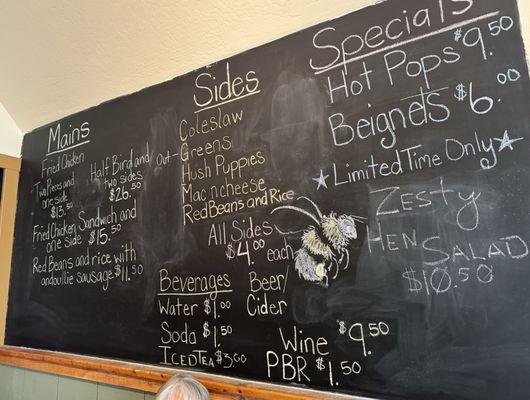 Mains
Fried Chicken
Two Pieces and
one side
$13.50
Half Bird and
two sides
$26.50
Fried Chicken Sandwich and
one side $15.50
Red Beans and rice with
andouille sausage $11.50
Sides
Coleslaw
Greens
Hush Puppies
Mac n cheese
Red Beans and Rice
All Sides
$4.00 each
Beverages
Water $1.00
Soda $1.50
Iced Tea $3.00
Beer/
Cider
Wine $9.50
PBR $1.50
Specials
Hot Pops $9.50
Beignets $6.00
Limited Time Only
Zesty
Hen Salad
$10.50